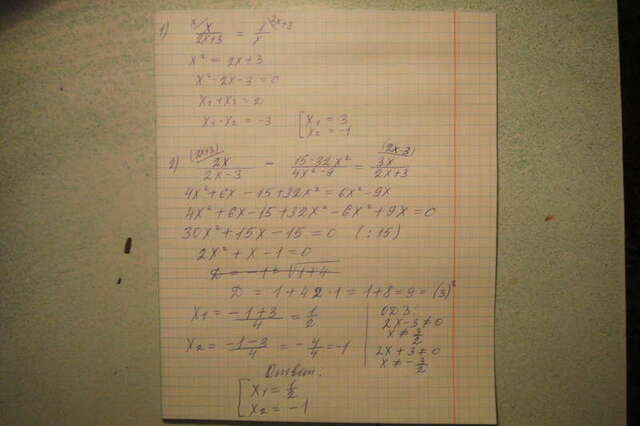 1) x/ x/2x+3 = 1/x 2x+3
x² = 2x+3
x²-2x-3=0
x₁+x₂=2
x₁·x₂=-3 [x₁=3
x₂=-1
2) (2x+3) 2x/2x-3 - 15-32x²/4x²-9 = (2x-3) 3x/2x+3
4x²+6x-15+32x²=6x²-9x
4x²+6x-15+32x²-6x²+9x=0
30x²+15x-15=0 (:15)
2x²+x-1=0
D = -1± √1+4
D = 1+4·2·1=1+8=9=(3)²
x₁ = -1+3/4 = 1/2
x₂ = -1-3/4 = -4/4 = -1
ОДЗ.
2x-3≠0
x≠3/2
2x+3≠0
x≠-3/2
Ответ:
[x₁=1/2
x₂=-1